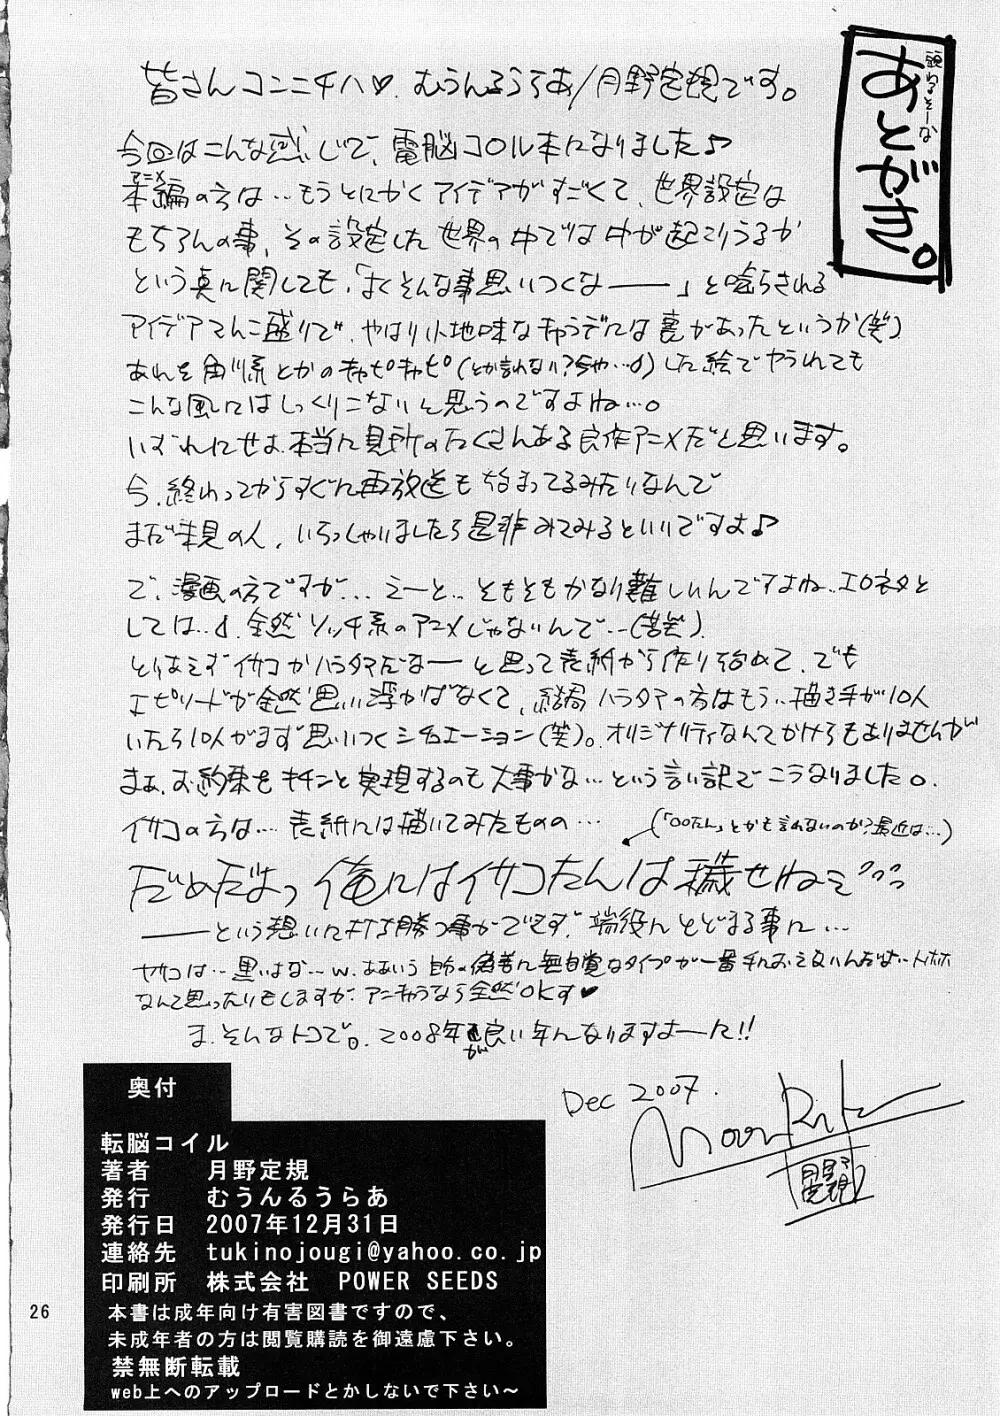 あとがき。
皆さんコンニチハ♡. むうんるうらあ/月野定規です。
今回はこんな感じで、電脳コイル本になりました♪
アニメ
本編の方は…もうとにかくアイデアがすごくて、世界設定は
もちろんの事、その設定した世界の中では何が起こりうるか
という点に関しても、「よくそんな事思いつくなーー」と唸らされる
アイデアてんこ盛りで、やはり地味なキャラデには裏があったというか(笑)
あれを角川系とかのキャピキャピ(とか言わない?今や…)した絵でやられても
こんな風にはしっくりこないと思うのですよね…。
いずれにせよ、本当に見所のたくさんある良作アニメだと思います。
今、終わってからすぐに再放送も始まってるみたいなんで
まだ未見の人、いらっしゃいましたら是非みてみるといいですよ♪
で、漫画の方ですが…えーと…そもそもかなり難しいんですよね…エロネタと
しては…。全然ソッチ系のアニメじゃないんで…(苦笑).
とりあえずイサコかハラケンだなーーと思って表紙から作り始めて、でも
エピソードが全然思い浮かばなくて、結局
の方はもう…描き手が10人
いたら10人がまず思いつくシチュエーション(笑)。オリジナリティなんてかけらもありませんが
まぁ、お約束をキチンと実現するのも大事かな…という言い訳でこうなりました。
イサコの方は…表紙には描いてみたものの…
(「○○たん」とかも言わないのか?最近は…)
だめだよっ 俺にはイサコたんは穢せねぇ
――という想いに打ち勝つ事ができず、端役にとどまる事に…
ヤサコは…黒いよな…w. ああいう自分の偽善に無自覚なタイプが一番手におえないんだよ…トホホ
なんて思ったりもしますが、アニキャラなら全然OKす♥
ま、そんなトコで。2008年が良い年になりますよーに!!
Dec 2007.
Moon Ruler
月野定規
奥付
転脳コイル
著者 月野定規
発行 むうんるうらあ
発行日 2007年12月31日
連絡先 tukinojougi@yahoo.co.jp
印刷所 株式会社 POWER SEEDS
本書は成年向け有害図書ですので、
未成年者の方は閲覧購読を御遠慮下さい。
禁無断転載
web上へのアップロードとかしないで下さい～
26